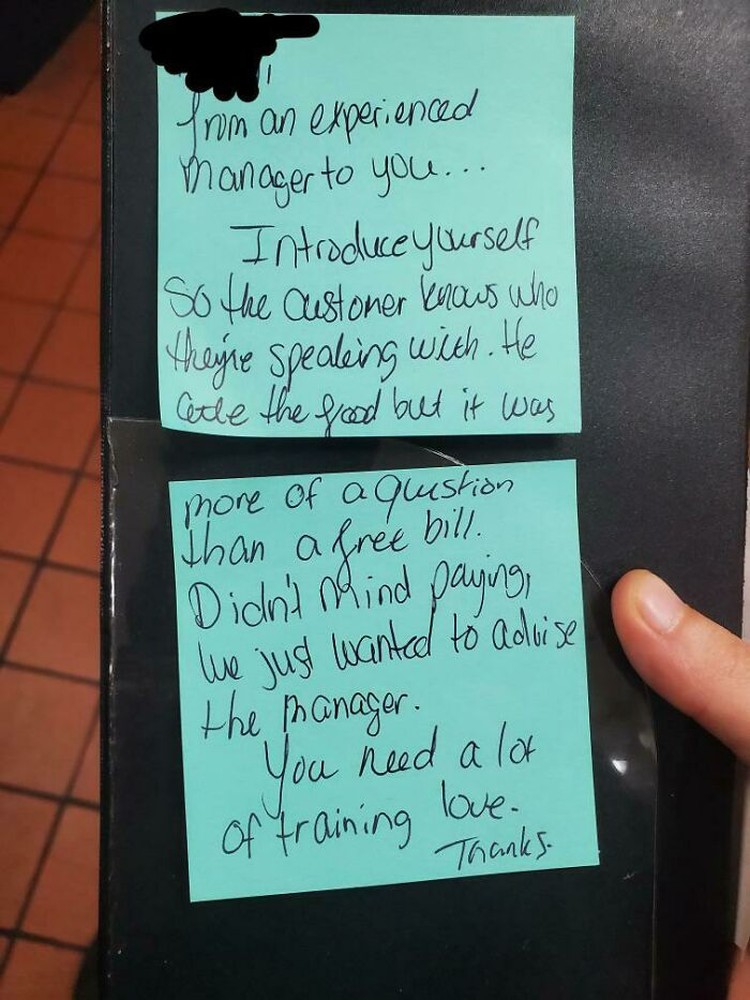 from an experienced
manager to you...
Introduce yourself
So the customer knows who
they're speaking with. He
ate the food but it was
more of a question
than a free bill.
Didn't mind paying,
We just wanted to advise
the manager.
You need a lot
of training love.
Thanks.